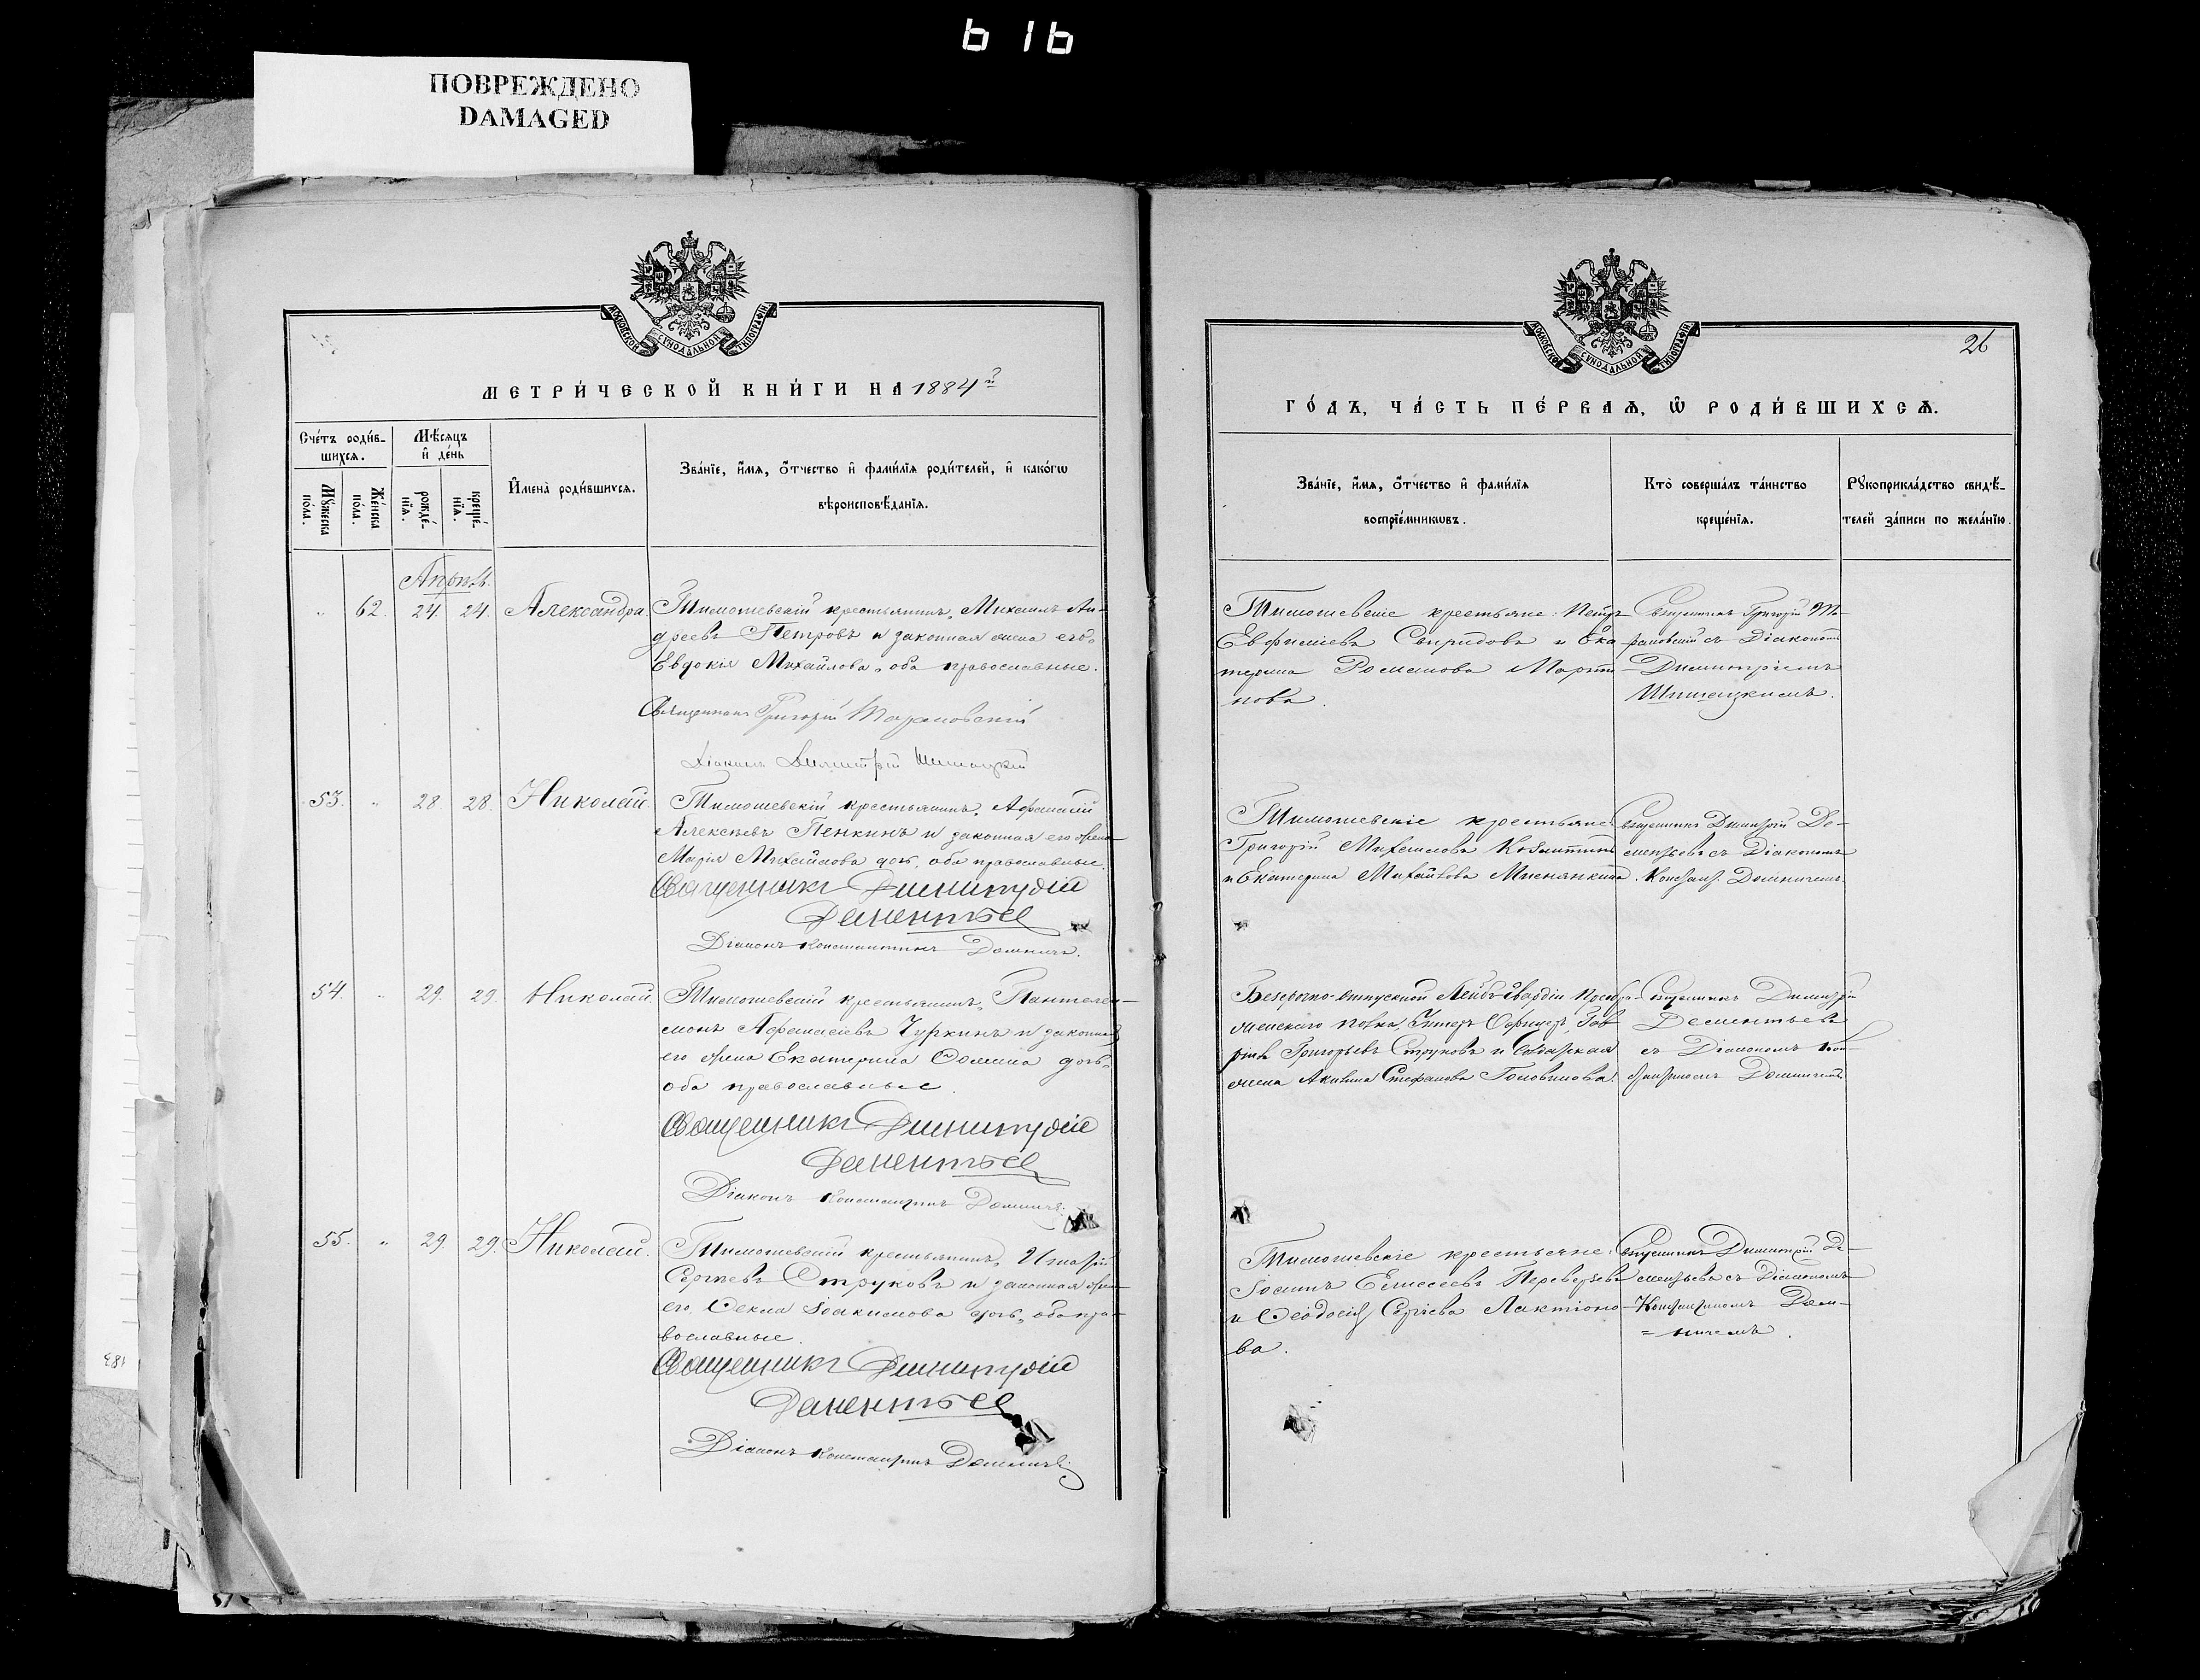 616
ПОВРЕЖДЕНО
DAMAGED
МОСКОВСКОЙ СѴНОДАЛЬНОЙ ТИПОГРАФІИ
МЕТРИ́ЧЕСКОЙ КНИ́ГИ НА 1884й
Сче́тъ роди́в-
шихсѧ.
Мѣ́сѧцъ
и҆ де́нь
Мꙋ́жеска
по́ла.
Же́нска
по́ла.
рожде́-
нїѧ.
креще́-
нїѧ.
И҆мена̀ роди́вшихсѧ.
Зва́нїе, и҆́мѧ, ѻ҆́тчество и҆ фамі́лїѧ роди́телей, и҆ како́гѡ
вѣроисповѣ́данїѧ.
Апрѣль.
" 62. 24. 24. Александра.
Тимошевскій крестьянинъ, Михаилъ Ан-
дреевъ Петровъ и законная жена его
Евдокія Михайлова, оба православные.
Священникъ Григорій Тарановскій
Діаконъ Димитрій Шишацкій
53. " 28 28. Николай.
Тимошевскій крестьянинъ, Афанасій
Алексѣевъ Пенкинъ и законная его жена
Марія Михайлова дочь, оба православные.
Священникъ Димитрій
Дементьев
Діаконъ Константинъ Домничъ.
54. " 29. 29. Николай.
Тимошевскій крестьянинъ, Пантелей-
монъ Афанасіевъ Чуркинъ и законная
его жена Екатерина Ѳомина дочь,
оба православные.
Священникъ Димитрій
Дементьев
Діаконъ Константинъ Домничъ.
55. " 29. 29. Николай.
Тимошевскій крестьянинъ, Игнатій
Сергѣевъ Струковъ и законная жена
его Ѳекла Іоакимова дочь, оба пра-
вославные.
Священникъ Димитрій
Дементьев
Діаконъ Константинъ Домничъ
МОСКОВСКОЙ СѴНОДАЛЬНОЙ ТИПОГРАФІИ
26
ГО́ДЪ, ЧА́СТЬ ПЕ́РВАѦ, Ѽ РОДИ́ВШИХСѦ.
Зва́нїе, и҆́мѧ, ѻ҆́тчество и҆ фамі́лїѧ
воспрїе́мникѡвъ.
Кто̀ соверша́лъ та́инство
креще́нїѧ.
Рꙋкоприкла́дство свидѣ́-
телей за́писи по жела́нїю.
Тимошевскіе крестьяне: Петръ
Евфиміевъ Свиридовъ и Ека
терина Романова Марты
нова.
Священникъ Григорій Та-
рановскій съ Діакономъ
Димитріемъ
Шишацкимъ.
Тимошевскіе крестьяне
Григорій Михаиловъ
и Екатерина Михайлова
Священникъ Димитрій Де-
ментьевъ съ Діакономъ
Констант. Домничемъ.
Безсрочно-отпускной Лейбъ-Гвардіи Преобра-
женскаго полка, Унтеръ Офицеръ, Гав
ріилъ Григорьевъ Струковъ и Солдатская
жена Акилина Стефанова Головинова.
Священникъ Димитрій
Дементьевъ
съ Діакономъ Кон-
стантиномъ Домничемъ
Тимошевскіе крестьяне:
Іоаннъ Елисеевъ Переверзевъ
и Ѳеодосія Сергіева Лактіоно-
ва.
Священникъ Димитрій Де-
ментьевъ съ Діакономъ
Константиномъ Дом-
=ничемъ.
183